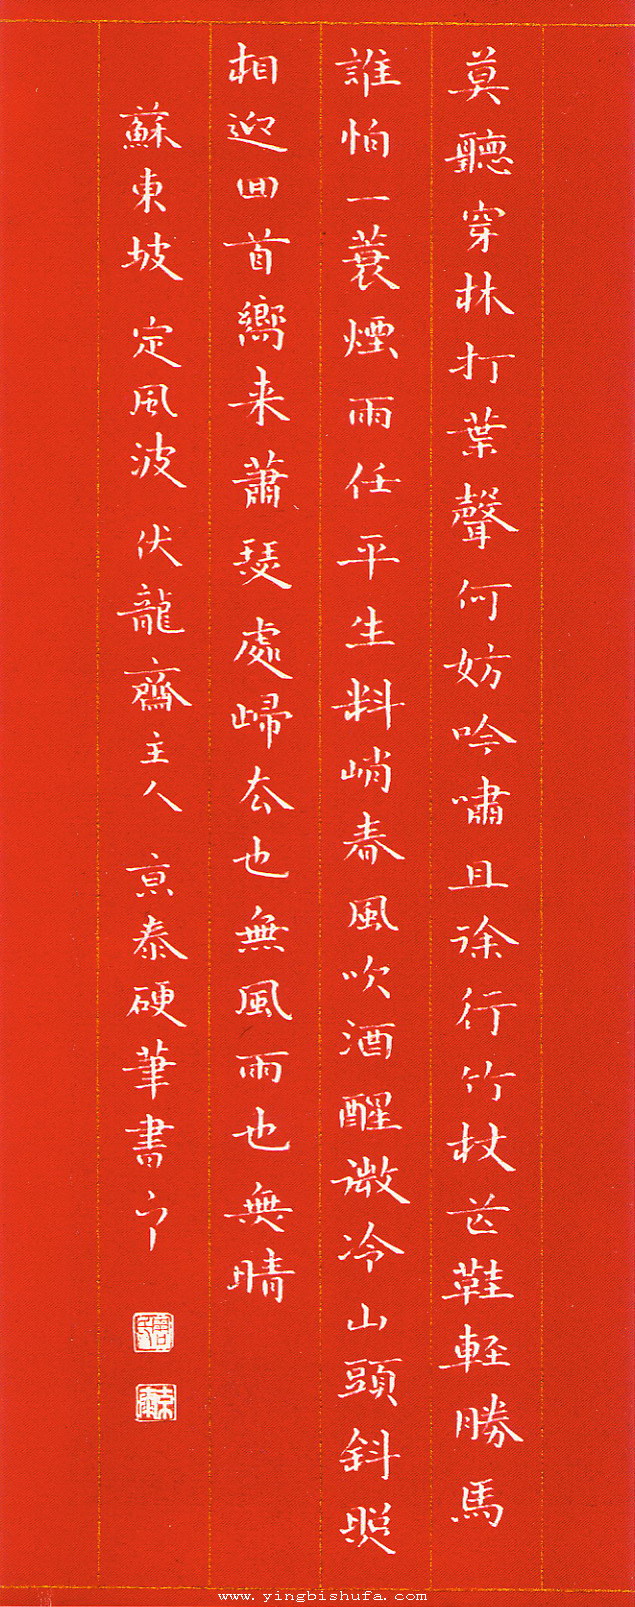 莫聽穿林打葉聲何妨吟嘯且徐行竹杖芒鞋輕勝馬
誰怕一蓑煙雨任平生料峭春風吹酒醒微冷山頭斜照
相迎回首嚮来蕭瑟處歸去也無風雨也無晴
蘇東坡 定風波 伏龍齋主人 京泰硬筆書
www.yingbishufa.com